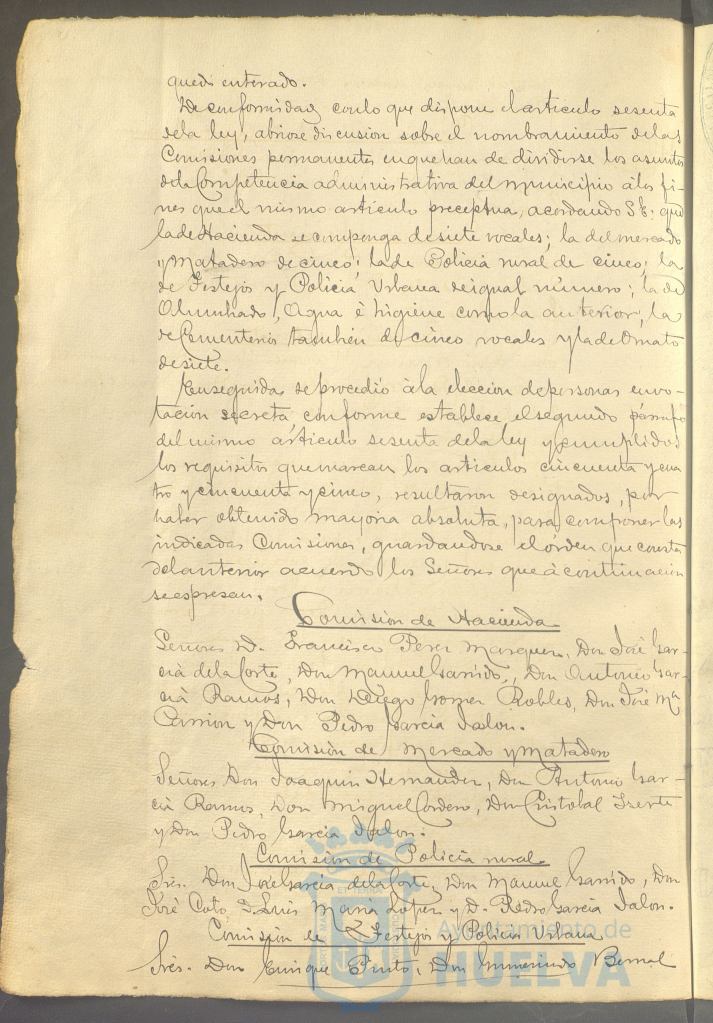 quedó enterado.
De conformidad con lo que dispone el articulo sesenta
de la ley, abriose discusion sobre el nombramiento de las
Comisiones permanentes en que han de dividirse los asuntos
de la Competencia administrativa del municipio á los fi-
nes que el mismo articulo preceptua, acordando S.E. que
la de Hacienda se componga de siete vocales; la del mercado
y Matadero de cinco; la de Policia rural de cinco; la
de Festejos y Policia Urbana de igual número; la de
Alumbrado, Agua é higiene como la anterior; la
de Cementerios tambien de cinco vocales y la de Ornato
de siete.
Enseguida se procedió á la eleccion de personas en vo-
tacion secreta conforme establece el segundo parrafo
del mismo articulo sesenta de la ley y cumplidos
los requisitos que marcan los articulos cincuenta y cua
tro y cincuenta y cinco, resultaron designados, por
haber obtenido mayoria absoluta, para componer las
indicadas Comisiones, guardandose el órden que consta
del anterior acuerdo los Señores que á continuacion
se espresan.
Comision de Hacienda
Señores D. Francisco Perez Marquez, Don José Gar-
cia de la Corte, Don Manuel Garrido, Don Antonio Gar-
cia Ramos, Don Diego Gomez Robles, Don José Mª
Carrion y Don Pedro Garcia Jalon.
Comision de Mercado y Matadero
Señores Don Joaquin Hernandez, Don Antonio Gar-
cia Ramos, Don Miguel Cordero, Don Cristobal
y Don Pedro Garcia Jalon.
Comision de Policia rural
Sres. Don José Garcia de la Corte, Don Manuel Garrido, Don
José Coto, D. Luis Maria Lopez y D. Pedro Garcia Jalon.
Comision de Festejos y Policia Urbana
Sres. Don Enrique Pinto, Don Bernal
Ayuntamiento de
HUELVA